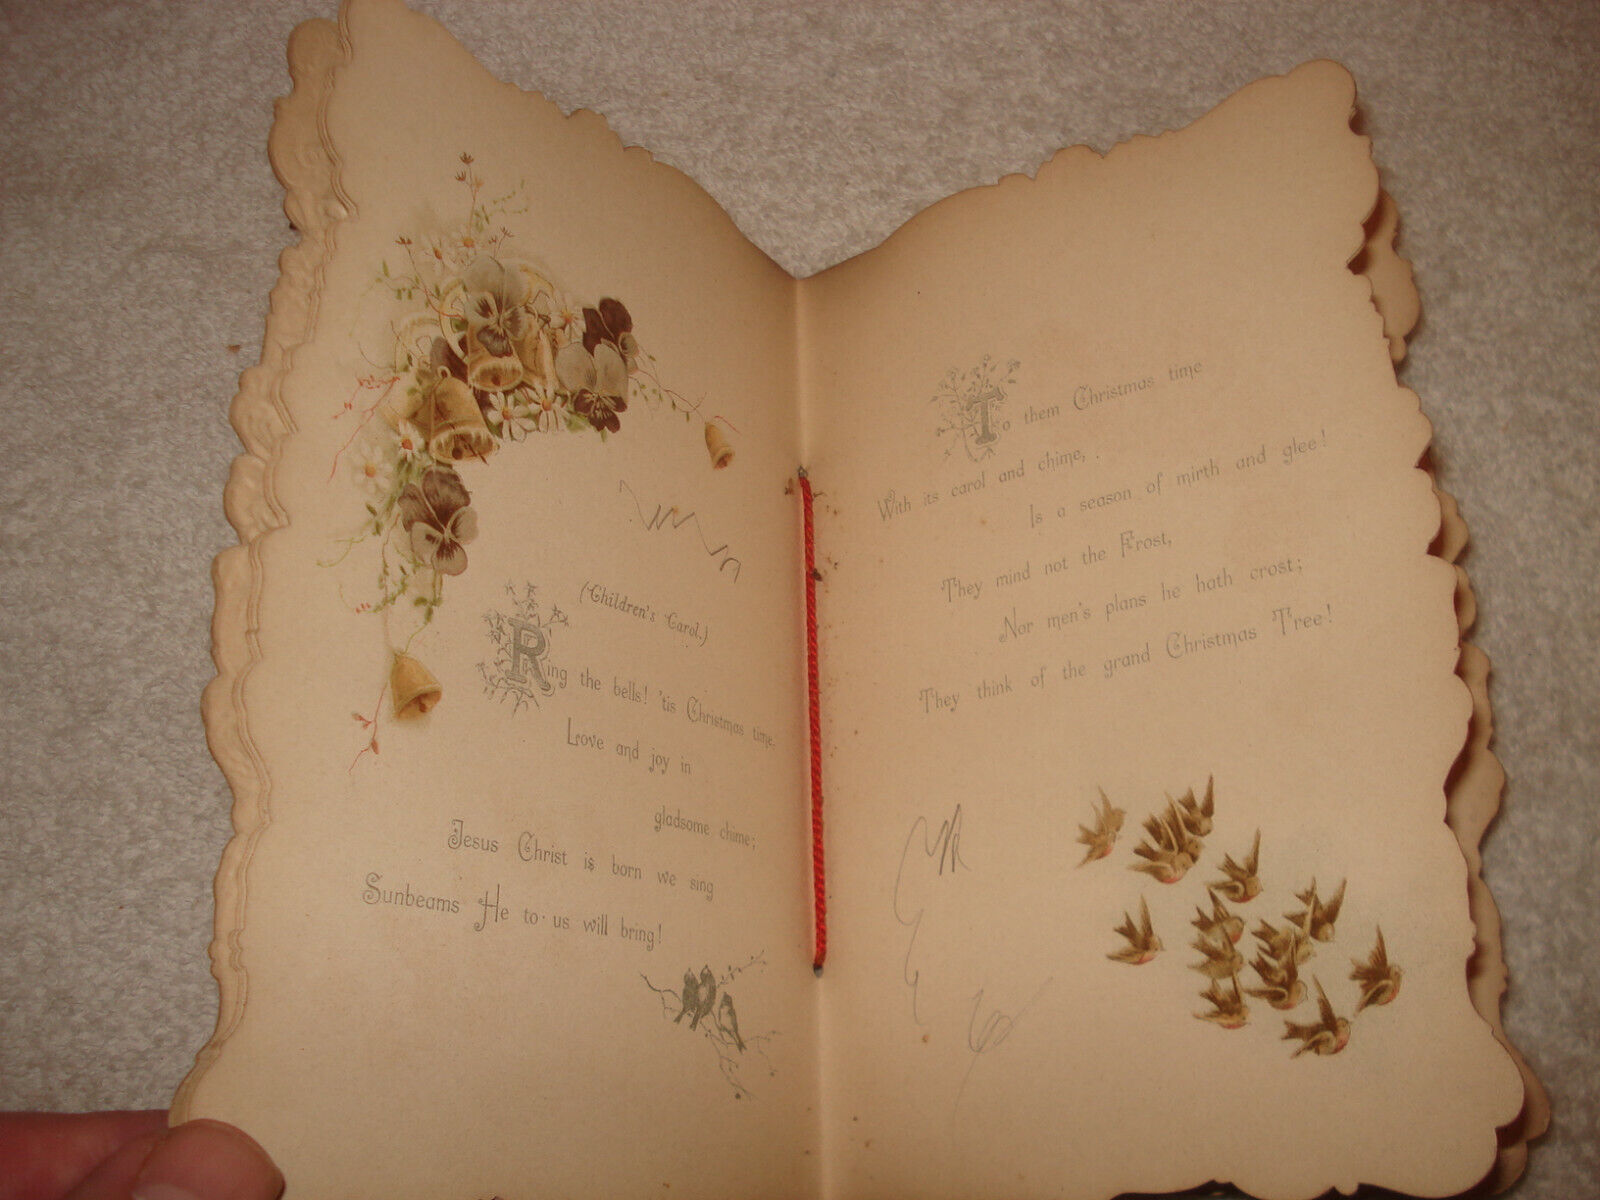 (Children's Carol.)
Ring the bells! 'tis Christmas time.
Love and joy in
gladsome chime;
Jesus Christ is born we sing
Sunbeams He to us will bring!
To them Christmas time
With its carol and chime,
Is a season of mirth and glee!
They mind not the Frost,
Nor men's plans he hath crost;
They think of the grand Christmas Tree!